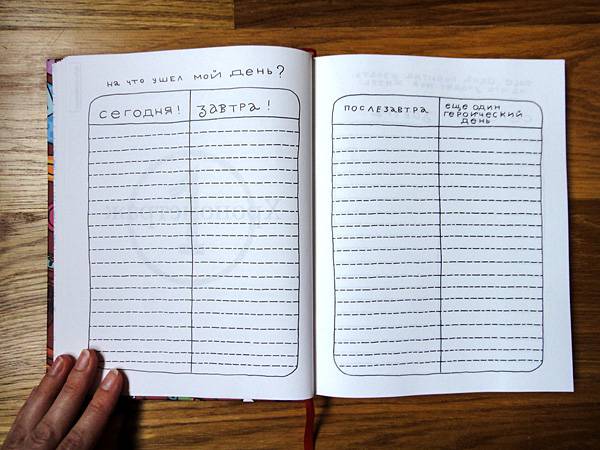 на что ушел мой день?
сегодня!
завтра!
послезавтра
еще один
героический
день